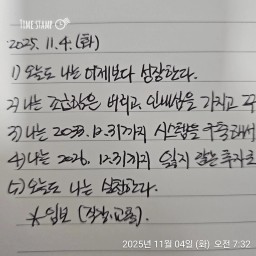 TIME STAMP
2025. 11. 4. (화)
1) 오늘도 나는 어제보다 성장한다.
2) 나는 조급함은 버리고, 인내심을 가지고 꾸
3) 나는 2033. 12. 31까지 시스템을 구축해서
4) 나는 2026. 12. 31까지 잃지 않는 투자로
5) 오늘도 나는 실천한다.
* 일보
2025년 11월 04일 (화) 오전 7:32